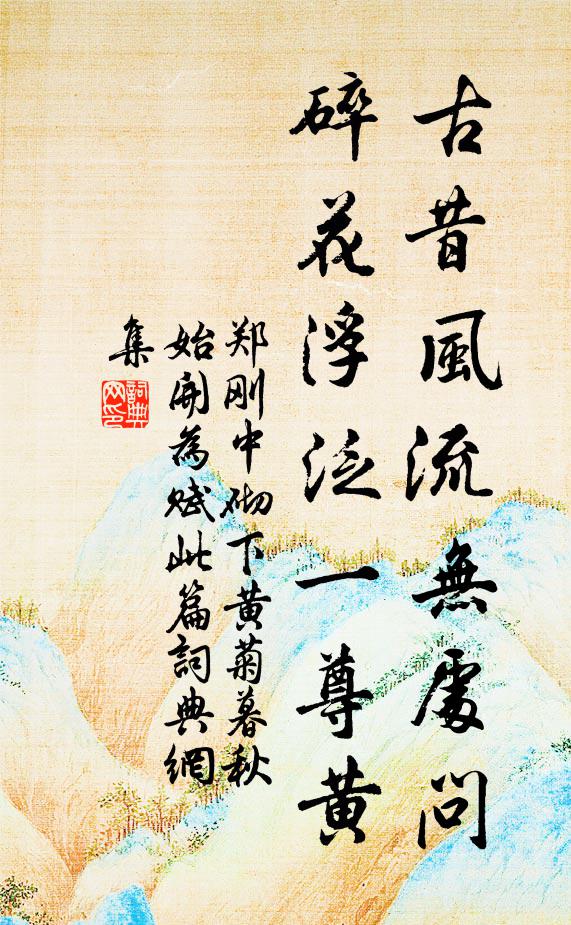 古昔風流無處問
碎花浮泛一尊黄
郑刚中砌下黄菊暮秋
始開為赋此篇詞典網
集
詞典
网印